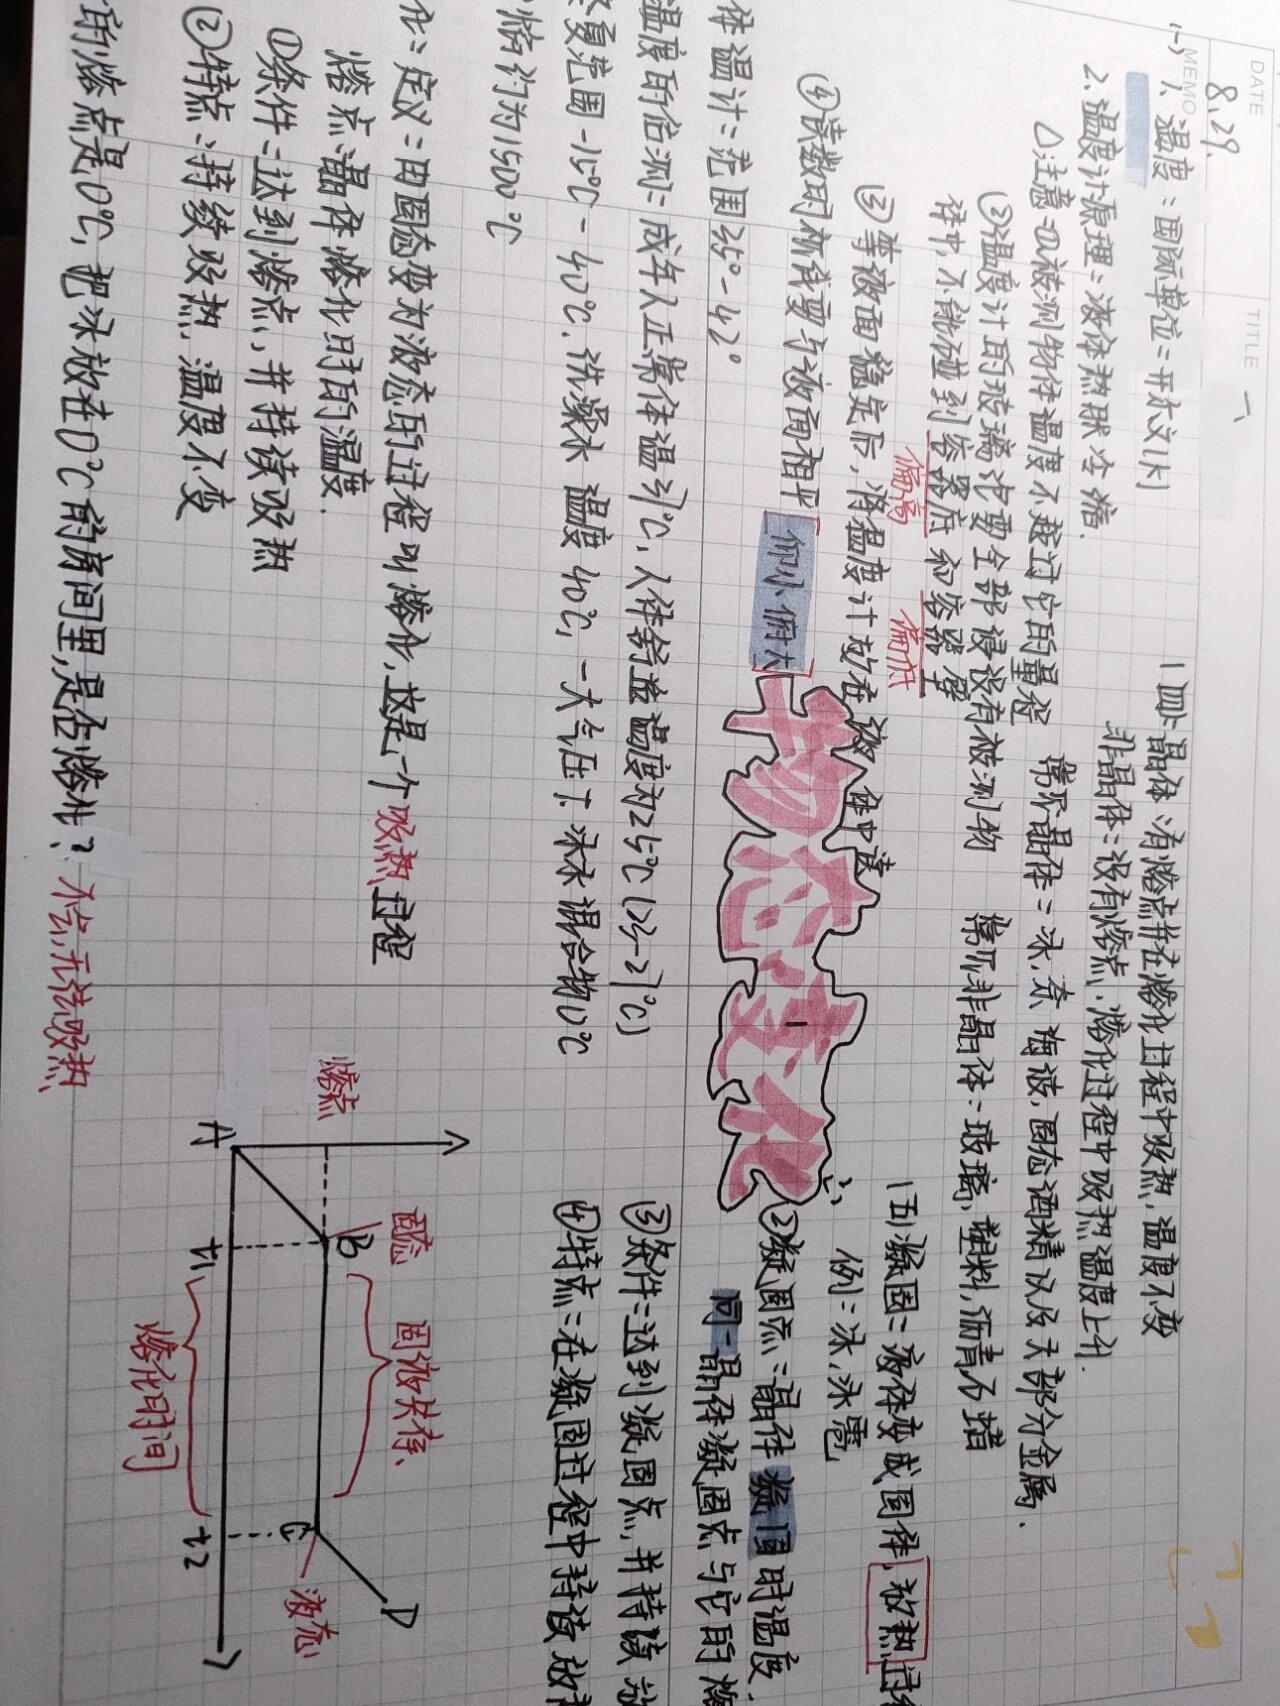 DATE
8.29.
MEMO
TITLE
(一) 1. 温度：国际单位：开尔文(K)
2. 温度计原理：液体热胀冷缩.
△注意：①被测物体温度不超过它的量程
②温度计的玻璃泡要全部浸没有被测物
体中,不能碰到容器底和容器壁
偏高
偏低
③等液面稳定后,将温度计放在液体中读
④读数时视线要与液面相平
仰小俯大
体温计：范围35°-42°
温度的估测：成年人正常体温37℃,人体舒适温度为25℃(23-27℃)
范围-15℃-40℃.洗澡水温度40℃,一大气压下冰水混合物0℃
约为1500℃
化：定义：由固态变为液态的过程叫熔化,这是一个吸热过程
熔点：晶体熔化时的温度.
①条件：达到熔点,并持续吸热
②特点：持续吸热,温度不变
的熔点是0℃,把冰放在0℃的房间里,是否熔化?不会,无法吸热
物态变化
(四)晶体：有熔点并在熔化过程中吸热,温度不变
非晶体：没有熔点,熔化过程中吸热温度上升.
常见晶体：冰,萘,海波,固态酒精以及大部分金属.
常见非晶体：玻璃,塑料,沥青石蜡
(五)凝固：液体变成固体,放热过程
例：冰,冰雹
②凝固点：晶体凝固时温度.
同一晶体凝固点与它的熔
③条件：达到凝固点,并持续放
④特点：在凝固过程中持续放
熔点
固态
固液共存
液态
A
B
C
D
t1
t2
熔化时间